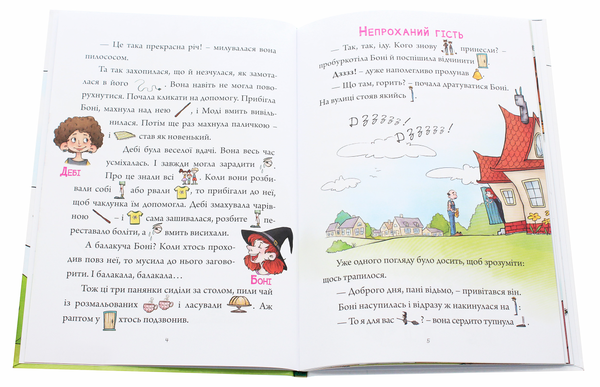 — Це така прекрасна річ! – милувалася вона
пилососом.
Та так захопилася, що й незчулася, як замота-
лася в його . Вона навіть не могла пово-
рухнутися. Почала кликати на допомогу. Прибігла
Боні, махнула над нею , і Моді вмить вивіль-
нилася. Потім ще раз махнула паличкою –
і став як новенький.
Дебі була веселої вдачі. Вона весь час
усміхалась. І завжди могла зарадити .
Про це знали всі . Коли вони розби-
вали собі або рвали , то прибігали до неї,
щоб чаклунка їм допомогла. Дебі змахувала чарів-
ною – і сама зашивалася, розбите пе-
реставало боліти, а вмить висихали.
А балакуча Боні? Коли хтось прохо-
див повз неї, то мусила до нього загово-
рити. І балакала, балакала…
Тож ці три панянки сиділи за столом, пили чай
із розмальованих і ласували . Аж
раптом у хтось подзвонив.
Дебі
Боні
4
Непроханий гість
— Так, так, іду. Кого знову принесли? –
пробуркотіла Боні й поспішила відчинити .
Дзззз! – дуже наполегливо пролунав .
— Що там, горить? – почала дратуватися Боні.
На вулиці стояв якийсь .
Дззззз!
Дззззз!
Уже одного погляду було досить, щоб зрозуміти:
щось трапилося.
— Доброго дня, пані відьмо, – привітався він.
Боні насупилась і відразу ж накинулася на :
— То я для вас ? – вона сердито тупнула .